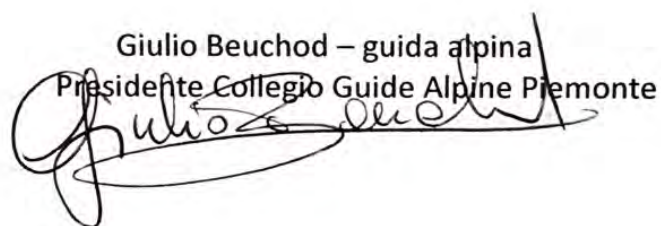 Giulio Beuchod – guida alpina
Presidente Collegio Guide Alpine Piemonte
Giulio Beuchod